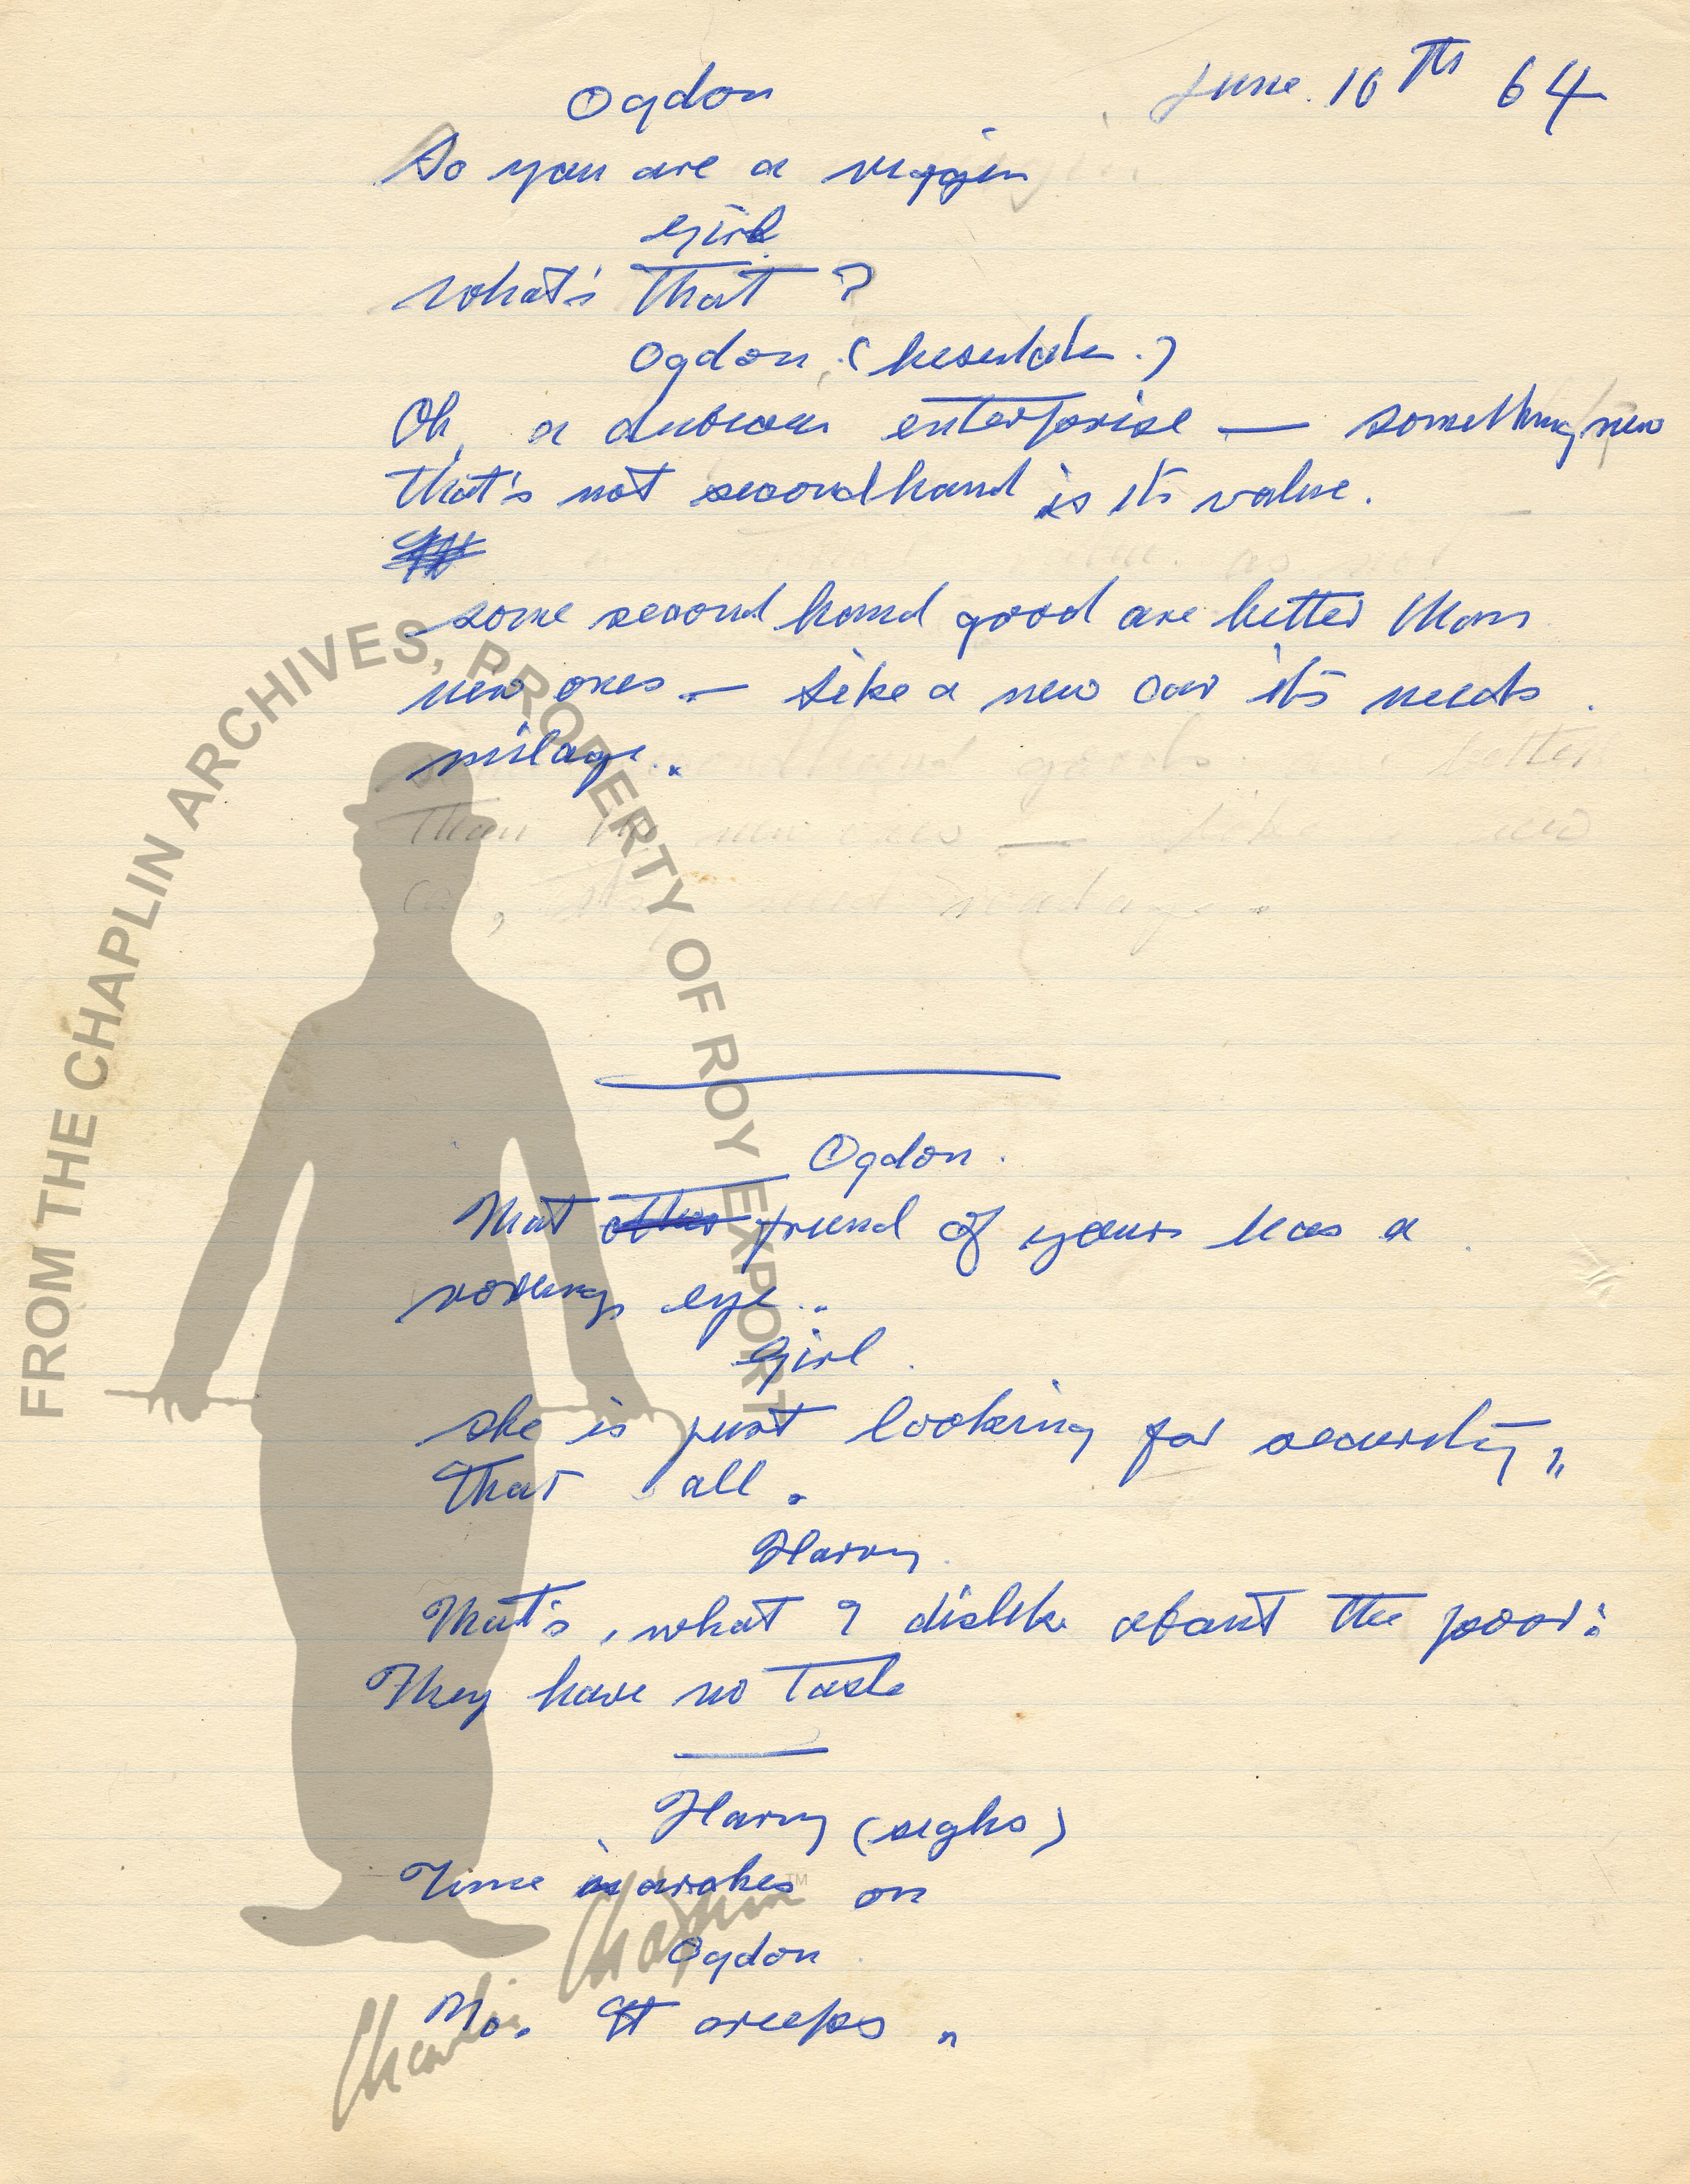 June. 10th 64
Ogdon
So you are a virgin
Girl
What's that?
Ogdon, (hesitate.)
Oh, a dubious enterprise — something new
that's not secondhand is its value.
some second hand good are better than
new ones — like a new car its needs
milage.
than the new ones — like a new
car, its need
Ogdon.
That other friend of yours has a
roving eye..
Girl.
she is just looking for security,,
that all.
Harry.
That's, what I dislike about the poor:
They have no taste
Harry (sighs)
Time is crokes on
Ogdon
No. It creeps
FROM THE CHAPLIN ARCHIVES, PROPERTY OF ROY EXPORT
Charlie Chaplin TM